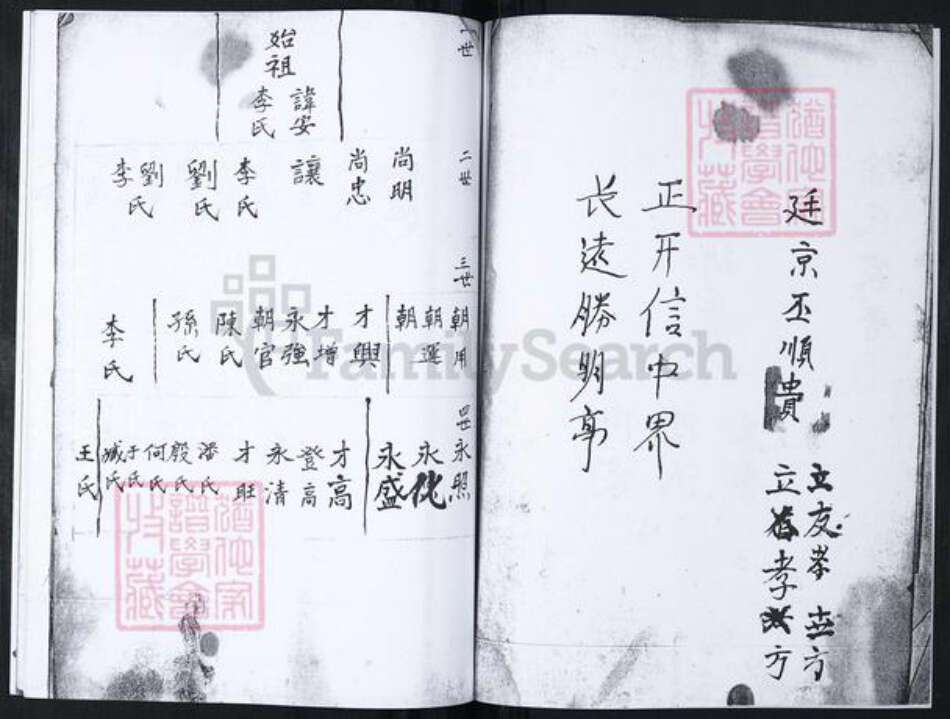 廷京丕順貴
立友孝 世方
立孝 方
正开信中界
长遠勝明亭
一世
始祖
諱安
李氏
二世
尚明
尚忠
讓
李氏
劉氏
劉
李氏
三世
朝用
朝運
朝
才興
才增
永強
朝官
陳氏
孫氏
李氏
四世
永照
永化
永盛
才高
登高
永清
才旺
潘氏
殷氏
何氏
于氏
臧氏
王氏
FamilySearch
譜學會
收藏
譜學會
收藏